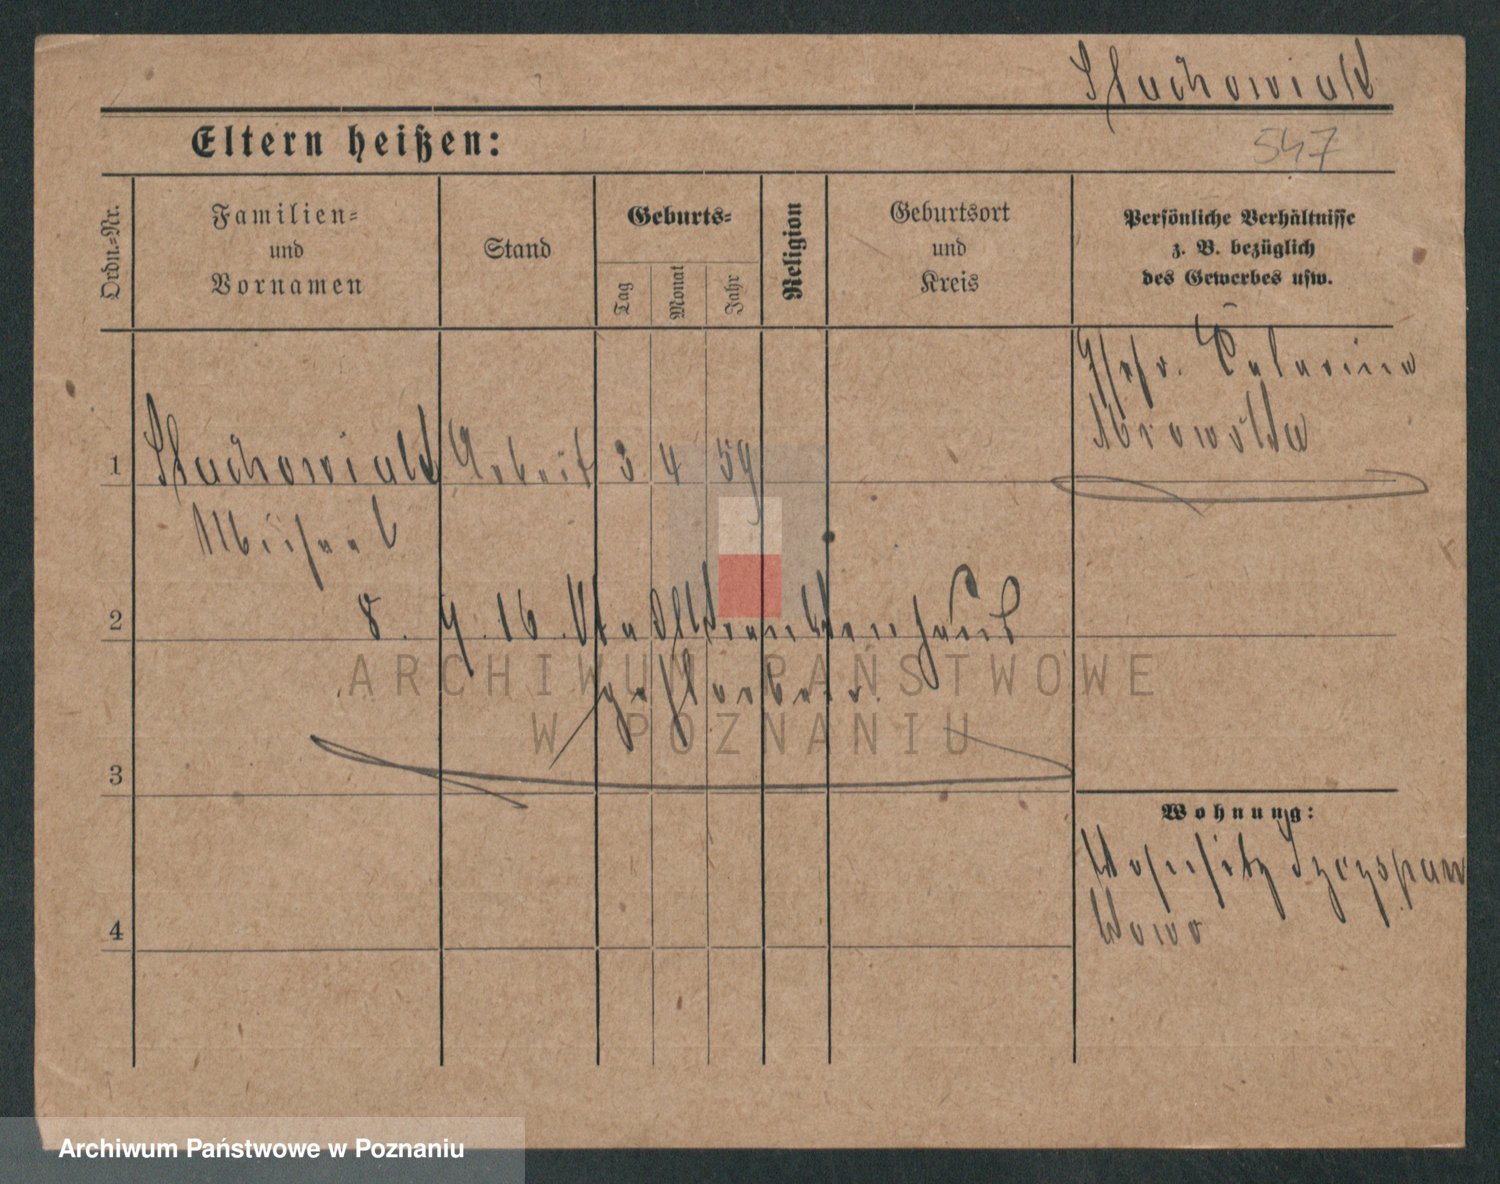 Stachowiak
Eltern heißen:
547
Ordn.-Nr.
Familien-
und
Vornamen
Stand
Geburts-
Tag
Monat
Jahr
Religion
Geburtsort
und
Kreis
Persönliche Verhältnisse
z. B. bezüglich
des Gewerbes usw.
Ehefr. Catarina
Mrowska
1
Stachowiak Arbeit 3 4 59
Michael
2
8. 9. 16. Stadtkrankenhaus
gestorben.
3
Wohnung:
Wohnsitz Szczepan
kowo
4
ARCHIWUM PAŃSTWOWE
W POZNANIU
Archiwum Państwowe w Poznaniu